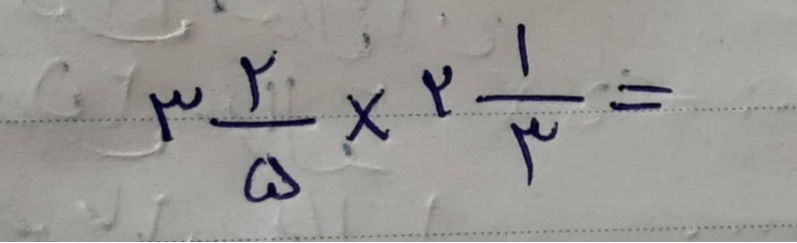 ۳ ۲/۵ × ۲ ۱/۳ =